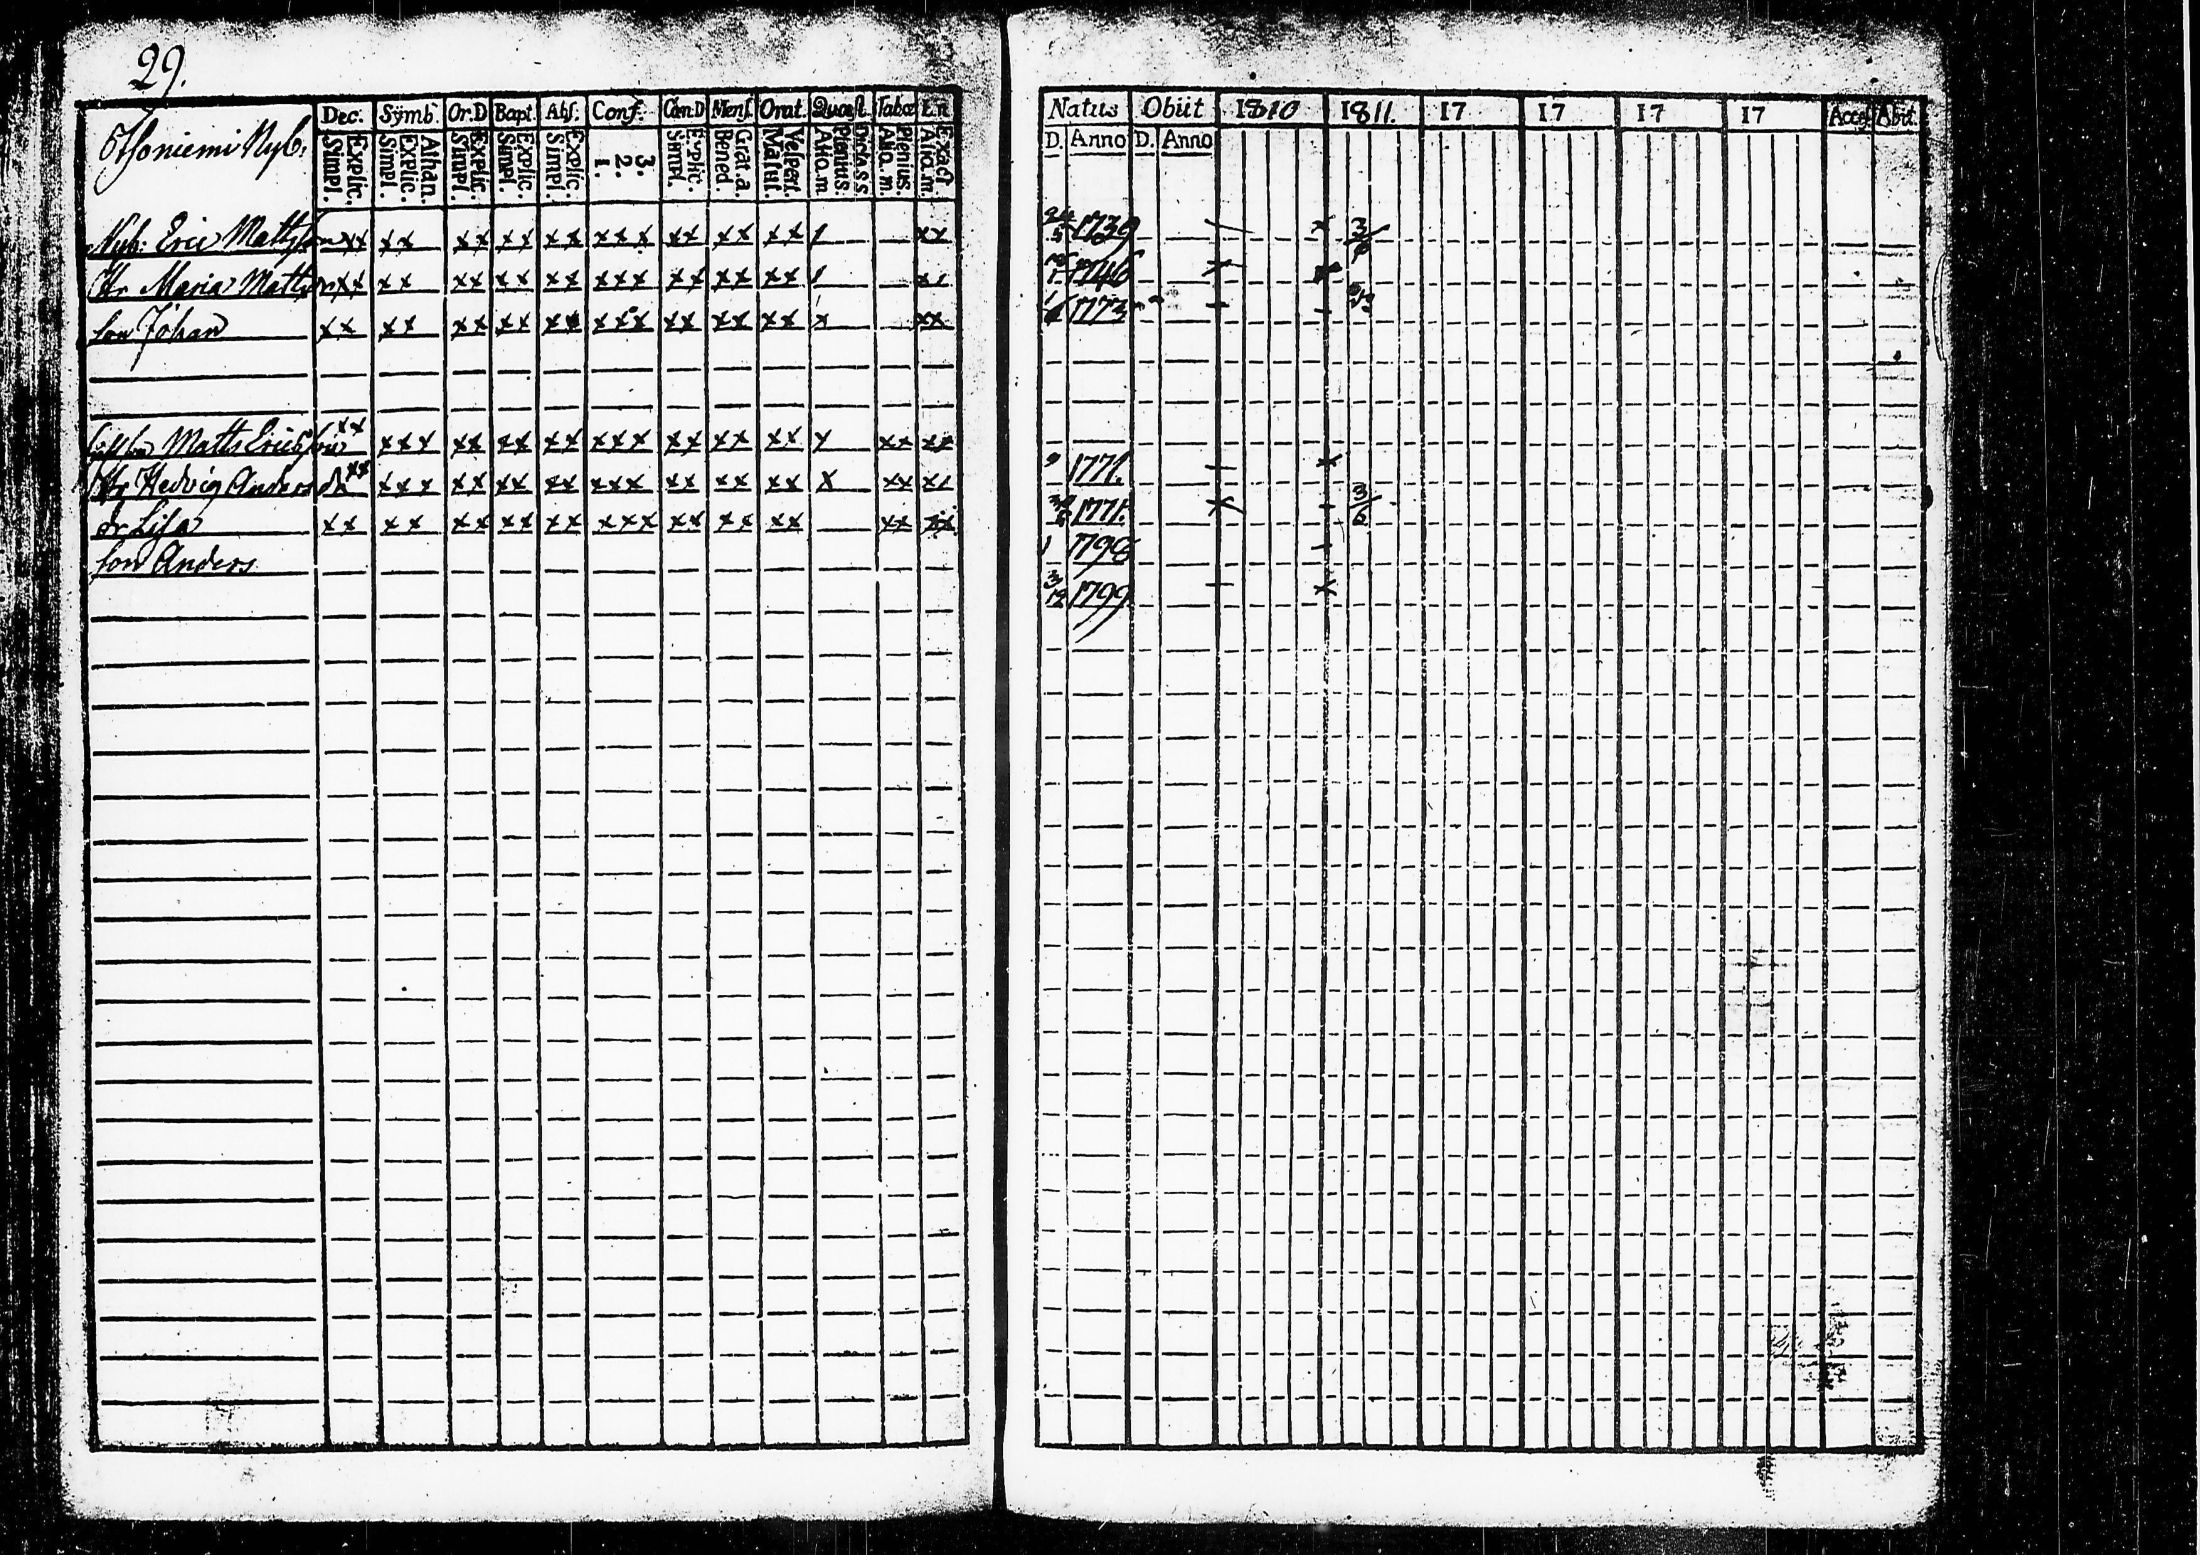 29.
Nyb.
Dec. Symb. Or.D Bapt. Abs. Conf. Cœn.D Mens. Orat. Quæst. Tabœ
Explic. Simpl.
Athan. Explic. Simpl.
Explic. Simpl.
Explic. Simpl.
Explic. Simpl.
3. 2. 1.
Explic. Simpl.
Grat.a. Bened.
Vespert. Matut.
Dicta s.s. Plenius. Aʃio.m.
Plenius. Aʃio.m.
Exact
Natus Obiit 1810 1811. 17 17 17 17 Acces. Abit.
D. Anno D. Anno
Nyb: Eric Mattsson xx xx xx xx xx xxx xx xx xx xx
24/5 1739 3/6
Hr Maria Mattsdr xx xx xx xx xx xxx xx xx xx
1746
son Johan xx xx xx xx xx xxx xx xx xx x xx
1773
Matts Ericsson xx xxx xx xx xx xxx xx xx xx x xx xx
1771.
Hr Hedvig Andersdr xx xxx xx xx xx xxx xx xx xx x xx
1771. 3/6
dr Lisa xx xx xx xx xx xxx xx xx xx xx xx
1798
son Anders
3/12 1799